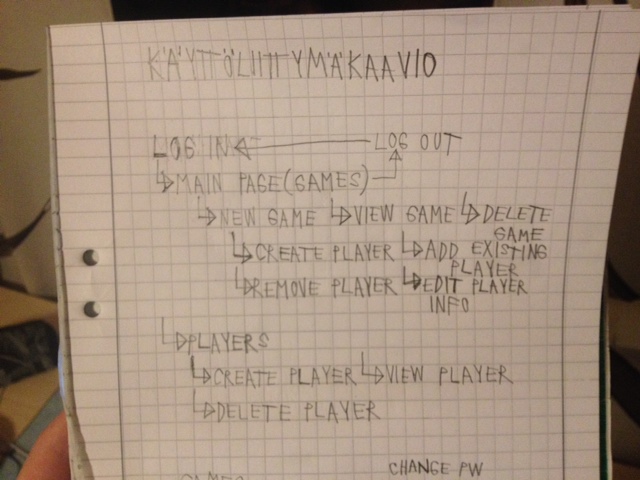 KÄYTTÖLIITTYMÄKAAVIO
LOG IN LOG OUT
MAIN PAGE(GAMES)
NEW GAME VIEW GAME DELETE
GAME
CREATE PLAYER ADD EXISTING
PLAYER
REMOVE PLAYER EDIT PLAYER
INFO
PLAYERS
CREATE PLAYER VIEW PLAYER
DELETE PLAYER
CHANGE PW